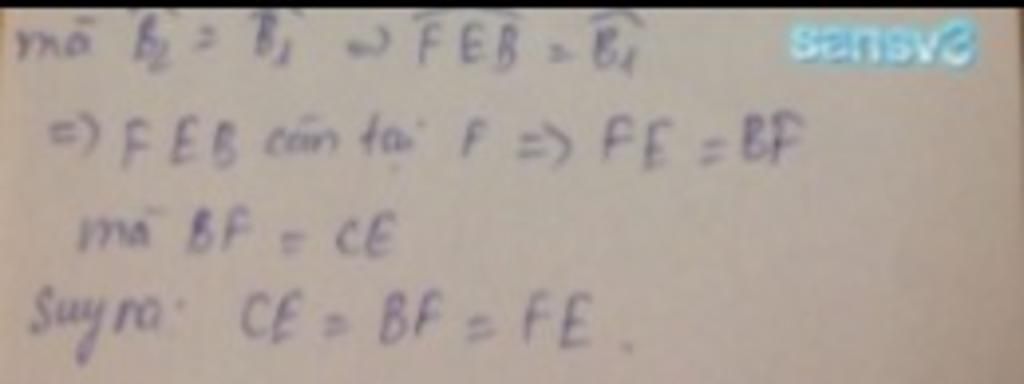 mà B̂₂ = B̂₁ => F̂EB = B̂₁
sansv3
=> FEB cân tại F => FE = BF
mà BF = CE
Suy ra: CE = BF = FE.